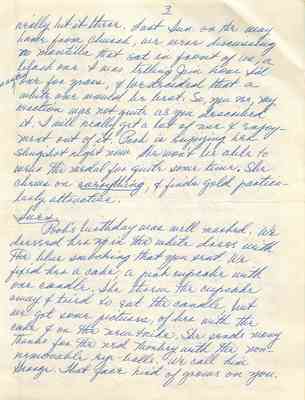 3
really hit it there. Last Sun. on the way
home from church, we were discussing
a mantilla that sat in front of us, a
black one. I was telling Jim how I'd
one for years, & he decided that a
white one would be best. So, you see, my
reaction was not quite as you described
it. I will really get a lot of use & enjoy-
ment out of it. Pooh is enjoying her
slingshot right now. She won't be able to
wear the medal for quite some time. She
chews on everything, & finds gold partic-
ularly attractive.
Tues.
Pooh's birthday was well marked. We
dressed her up in the white dress with
the blue smocking that you sent. We
fixed her a cake, a pink cupcake with
one candle. She threw the cupcake
away & tried to eat the candle, but
we got some pictures, of her with the
cake & on the new trike. She sends many
thanks for the red monkey with the non-
removable rip balls. We call him
George. That face kind of grows on you.